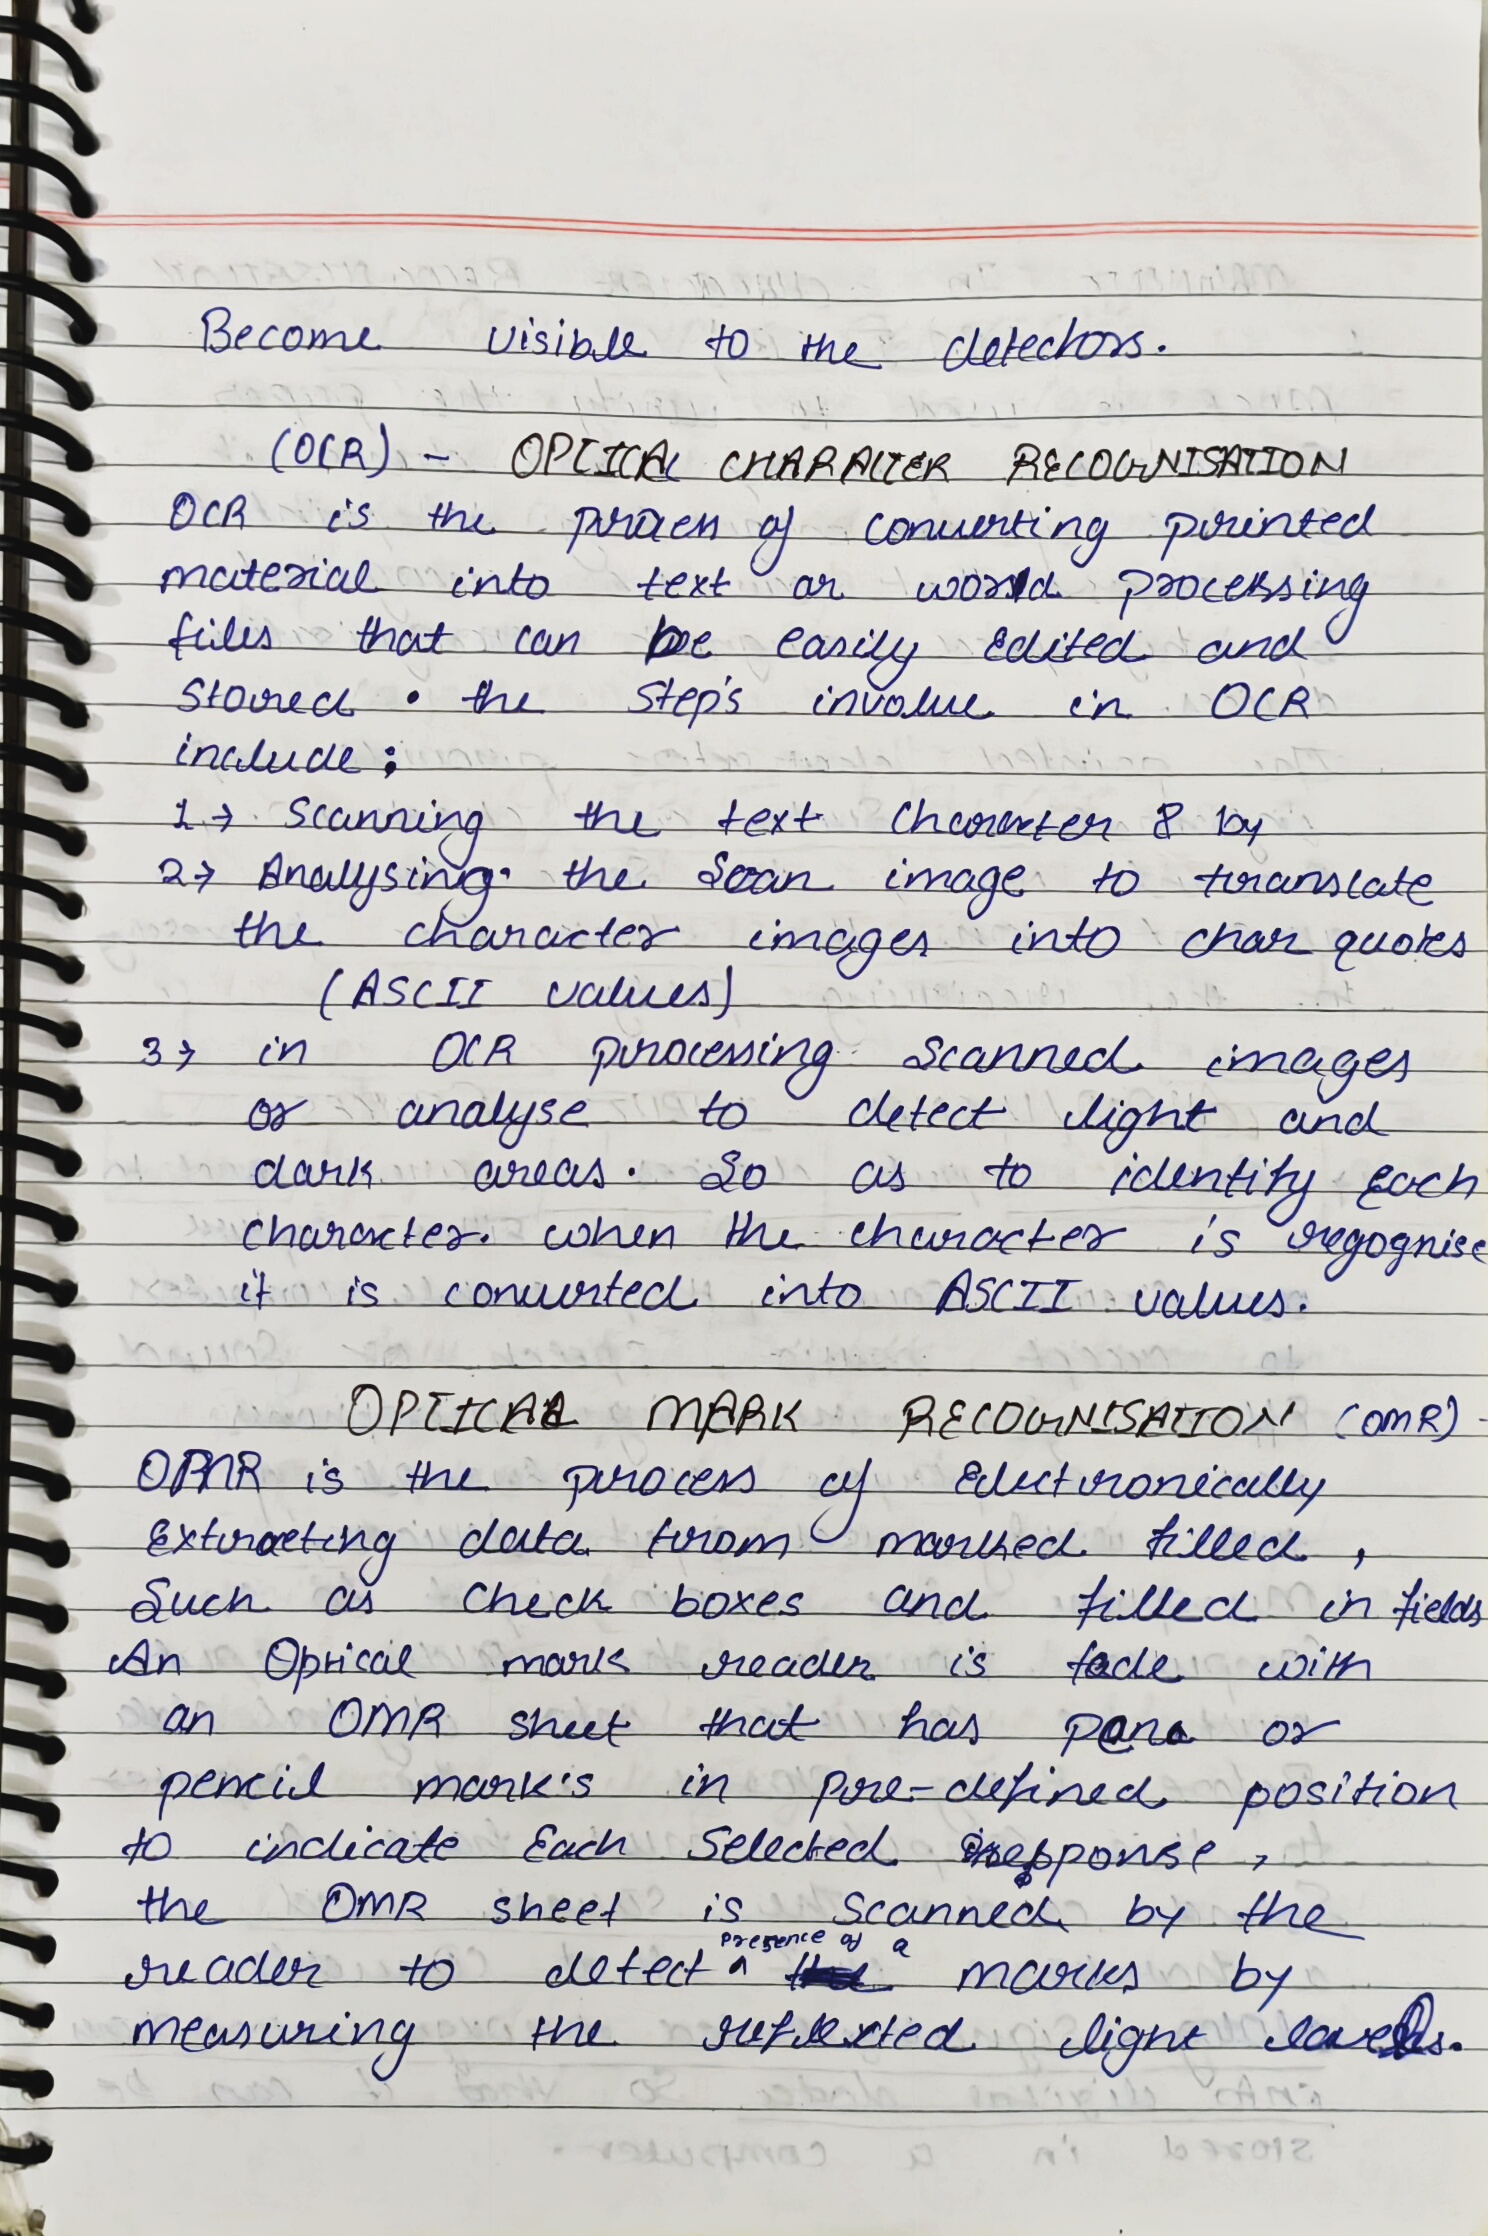 Become visible to the detectors.
(OCR) - OPTICAL CHARACTER RECOGNISATION
OCR is the process of converting printed
material into text or world processing
files that can be easily Edited and
Stored. the step's involve in OCR
include;
1→ Scanning the text Character & by
2→ Analysing. the Scan image to translate
the character images into char quotes
(ASCII values)
3→ in OCR processing Scanned images
or analyse to detect light and
dark areas. So as to identify Each
character. when the character is regognise
it is converted into ASCII values.
OPTICAL MARK RECOGNISATION (OMR) -
OMR is the process of Electronically
Extracting data from marked filled,
Such as Check boxes and filled in fields
An Optical mark reader is fade with
an OMR sheet that has pen or
pencil mark's in pre-defined position
to indicate Each Selected response,
the OMR sheet is Scanned by the
reader to detect ^ presence of a marks by
measuring the reflexted light levels.